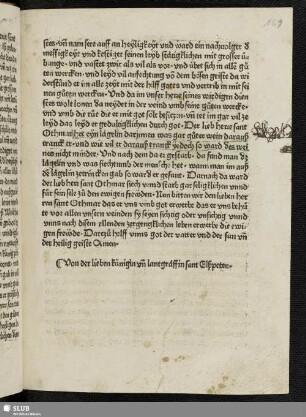 stes·vñ nam sere auff an heyligkeyt vnd ward ein nachuolger d
messigkeyt vnd kestiget seinen leyb stätigklichen mit grosser ü
bunge· vnd vastet zwir als vil als vor· vnd übet sich in alle gů
ten wercken· vnd leyd vil anfechtung võ dem bösen geiste da wi
derstůnd er in alle zeyt mit der hilf gottes vnd vertrib in mit sei
nen gůten wercken· Vnd da im vnser herre seines wirdigen dien
stes wolt lonen da neydet in der veind vmb seine gůten wercke·
vnd vmb die růe die er mit got solt besitzen· vñ tet im gar vil ze
leyd das leyd er gedultigklichen durch got· Der lieb herre sant
Othmar het eyn lägelin darjnnen was gar gůter wein darauß
tranck er· vnd wie vil er darauß tranck yedoch so ward des wei
nes nicht minder· Vnd nach dem da er gestarb· da fand man dz
lägelin vnd was sechtzund der men
d lägelin zetrincken gab so ward er gesunt· Darnach da ward
der lieb herr sant Othmar siech vnnd starb gar säligklichen vnnd
fůr sein sele zů den ewigen freüden· Nun bitten wir den lieben her
ren sant Othmar das er vns vmb got erwerbe das er vns behüt
te vor allen vnsern veinden sy seyen sichtig oder vnsichtig vnnd
vnns nach disem ellenden zergengklichen leben erwerbe die ewi
gen freüde· Dartzů helff vnns got der vatter vnd der sun vñ
der heilig geiste Amen·
Von der lieben künigin vñ lantgräffin sant Elßpeten·
169
SLUB